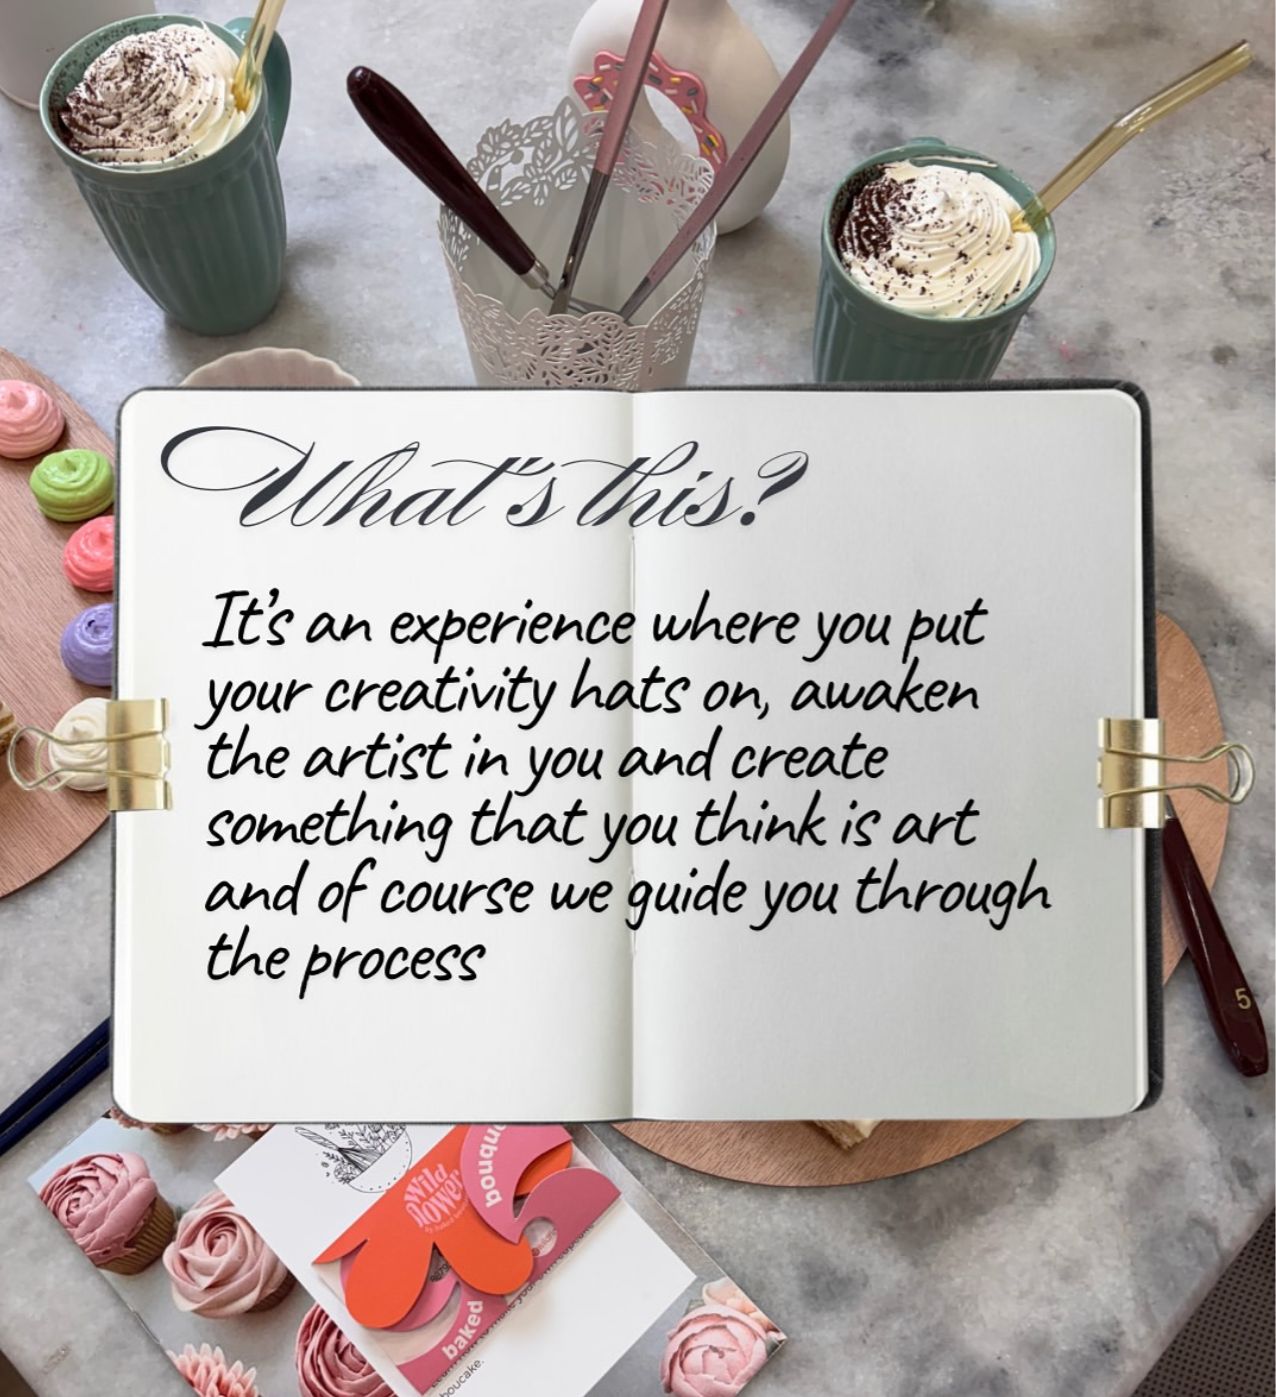 What's this?
It's an experience where you put
your creativity hats on, awaken
the artist in you and create
something that you think is art
and of course we guide you through
the process
5
wild
flower
baked
boucake.